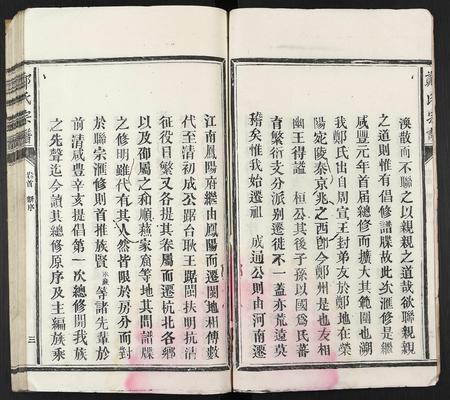 鄭氏宗譜
渙散而不聯之以親親之道哉欲聯親親
之道則惟有倡修譜牒故此次滙修是繼
咸豐元年首屆總修而擴大其範圍也溯
我鄭氏出自周宣王封弟友於鄭地在滎
陽宛陵秦京兆之西即今鄭州是也友相
幽王得諡 桓公其後子孫以國為氏蕃
育繁衍支分派別遷徙不一蓋亦荒遠莫
稽矣惟我始遷祖 成通公則由河南遷
江南鳳陽府繼由鳳陽而遷閩地相傳數
代至清初成公露台耿王踞閩扶明抗清
征役日繁又各提其眷屬而遷杭北各鄉
以及卲屬之和順燕家窩等地其間譜牒
之修明雖代有其人然皆限於房分而對
於聯宗滙修則首推族賢 等諸先輩於
前清咸豐辛亥提倡第一次總修開我族
之先聲迄今讀其總修原序及主編族乘
鄭氏宗譜
卷首 新序
三